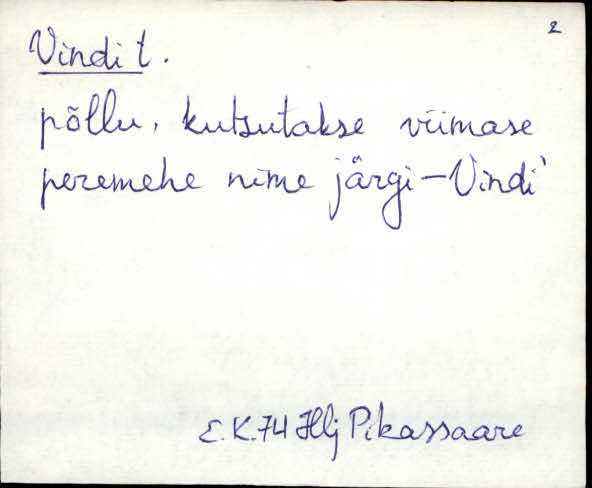 2
Vindi t.
põllu, kutsutakse viimase
peremehe nime järgi – Vindi'
E.K.74 Hlj Pikassaare